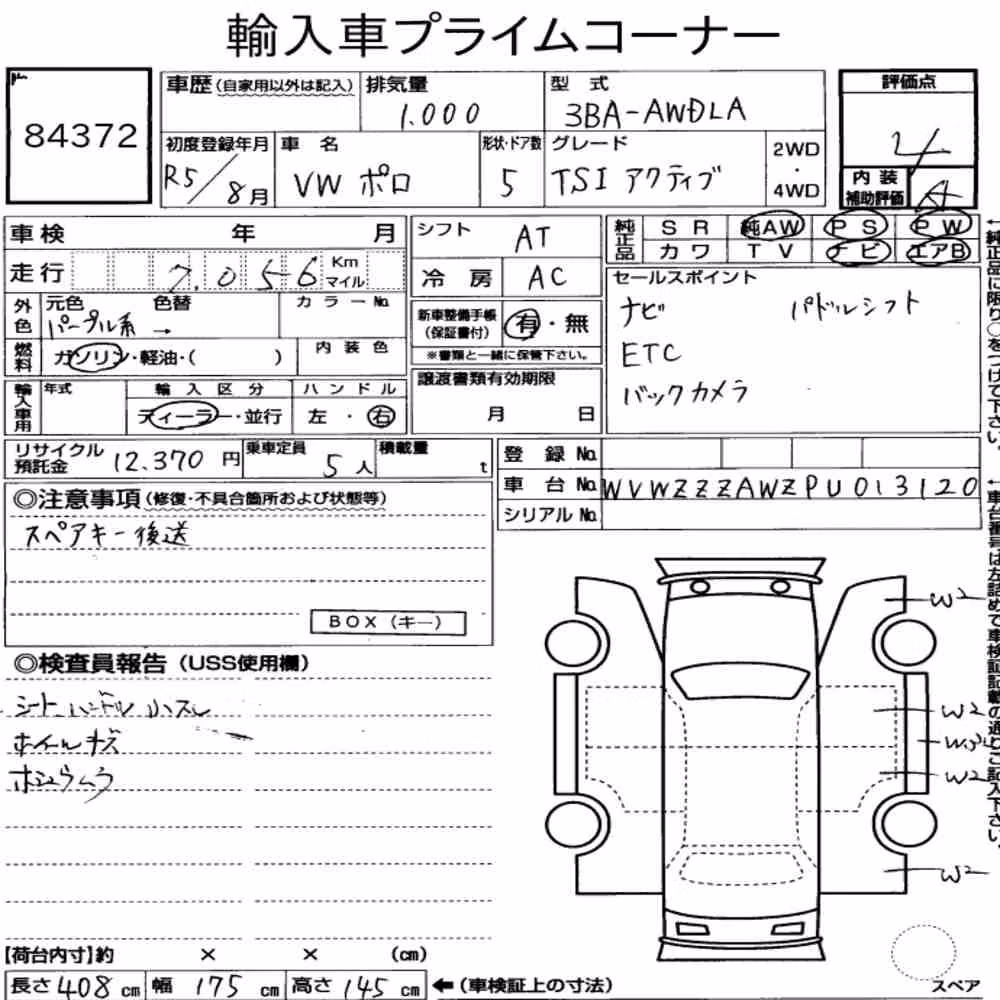 輸入車プライムコーナー
84372
車歴(自家用以外は記入)
排気量
1.000
型 式
3BA-AWDLA
評価点
4
初度登録年月
R5/8月
車 名
VW ポロ
形状・ドア数
5
グレード
TSI アクティブ
2WD
・
4WD
内 装
補助評価
A
車検 年 月
走行 7.056 Km マイル
外色 元色 色替 カラーNo.
パープル系 →
燃料 ガソリン・軽油・( ) 内装色
輸入車用 年式 輸入区分 ハンドル
ディーラー・並行 左・右
シフト AT
冷房 AC
新車整備手帳
(保証書付)
有・無
※書類と一緒に保管下さい。
譲渡書類有効期限
月 日
純正品 SR 純AW PS PW
カワ TV ナビ エアB
セールスポイント
ナビ パドルシフト
ETC
バックカメラ
←純正品に限り○をつけて下さい。
リサイクル
預託金
12.370 円
乗車定員
5人
積載量
t
登録 No.
車台 No. WVWZZZAWZPU013120
シリアル No.
←車台番号は左詰めで車検証記載の通りご記入下さい。
◎注意事項(修復・不具合箇所および状態等)
スペアキー後送
BOX(キー)
◎検査員報告(USS使用欄)
シート、ハンドル 小スレ
ホイールキズ
W2
W2
W2
W2
【荷台内寸】約 × × (cm)
長さ 408 cm 幅 175 cm 高さ 145 cm ←(車検証上の寸法)
スペア